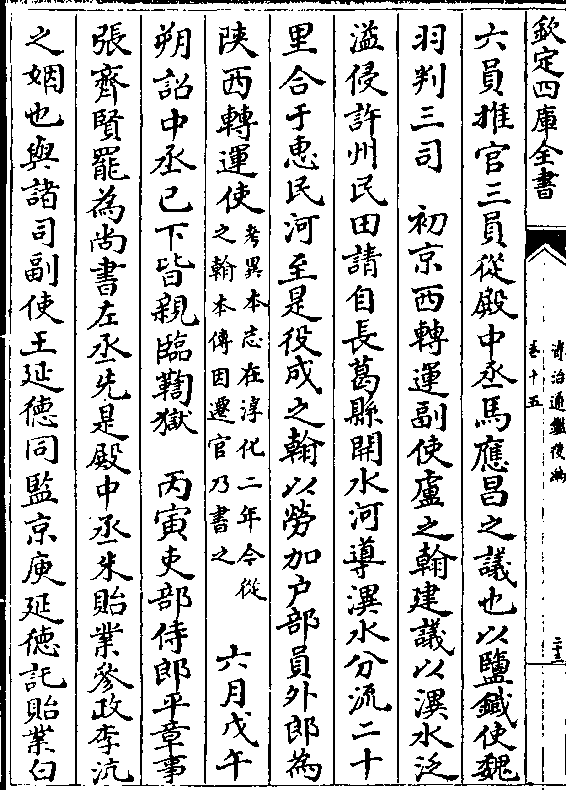 欽定四庫全書
資治通鑑後編
卷十五
二十三
六員推官三員從殿中丞馬應昌之議也以鹽鐵使魏
羽判三司　初京西轉運副使盧之翰建議以潩水泛
溢侵許州民田請自長葛縣開水河導潩水分流二十
里合于惠民河至是役成之翰以勞加户部員外郎為
陜西轉運使考異本志在淳化二年今從之翰本傳因遷官乃書之　六月戊午
朔詔中丞已下皆親臨鞫獄　丙寅吏部侍郎平章事
張齊賢罷為尚書左丞先是殿中丞朱貽業參政李沆
之姻也與諸司副使王延徳同監京庾延徳託貽業白